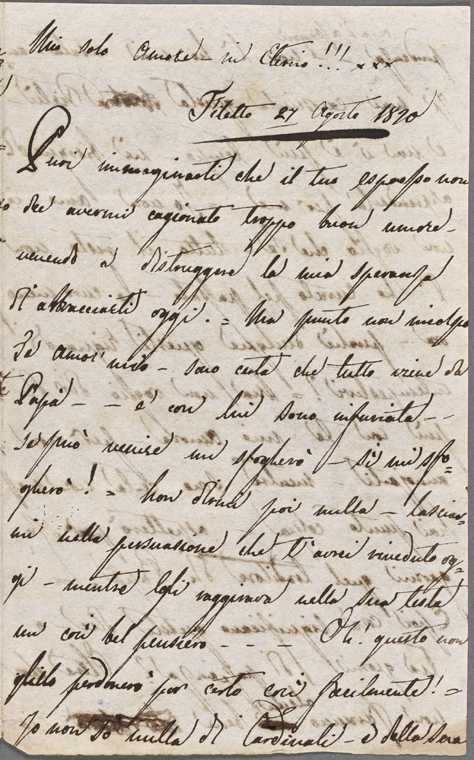 Mio solo Amore in Eterno!!! xxx
Filetto 27 Agosto 1820
Puoi immaginarti che il tuo espresso non
dee avermi cagionato troppo buon umore -
venendo a distruggere la mia speranza
d'abbracciarti oggi. = Ma punto non incolpo
Te Amor mio - sono certa che tutto viene da
Papà - - e con lui sono infuriata - -
se può venire mi sfogherò - sì mi sfo=
gherò! = Non dirmi poi nulla - lasciar=
mi nella persuasione che t'avrei riveduto og=
gi - mentre Egli raggirava nella sua testa
un così bel pensiero - - - - Oh! questo non
glielo perdonerò per certo così facilmente! =
Io non so nulla di Cardinali - e della sera